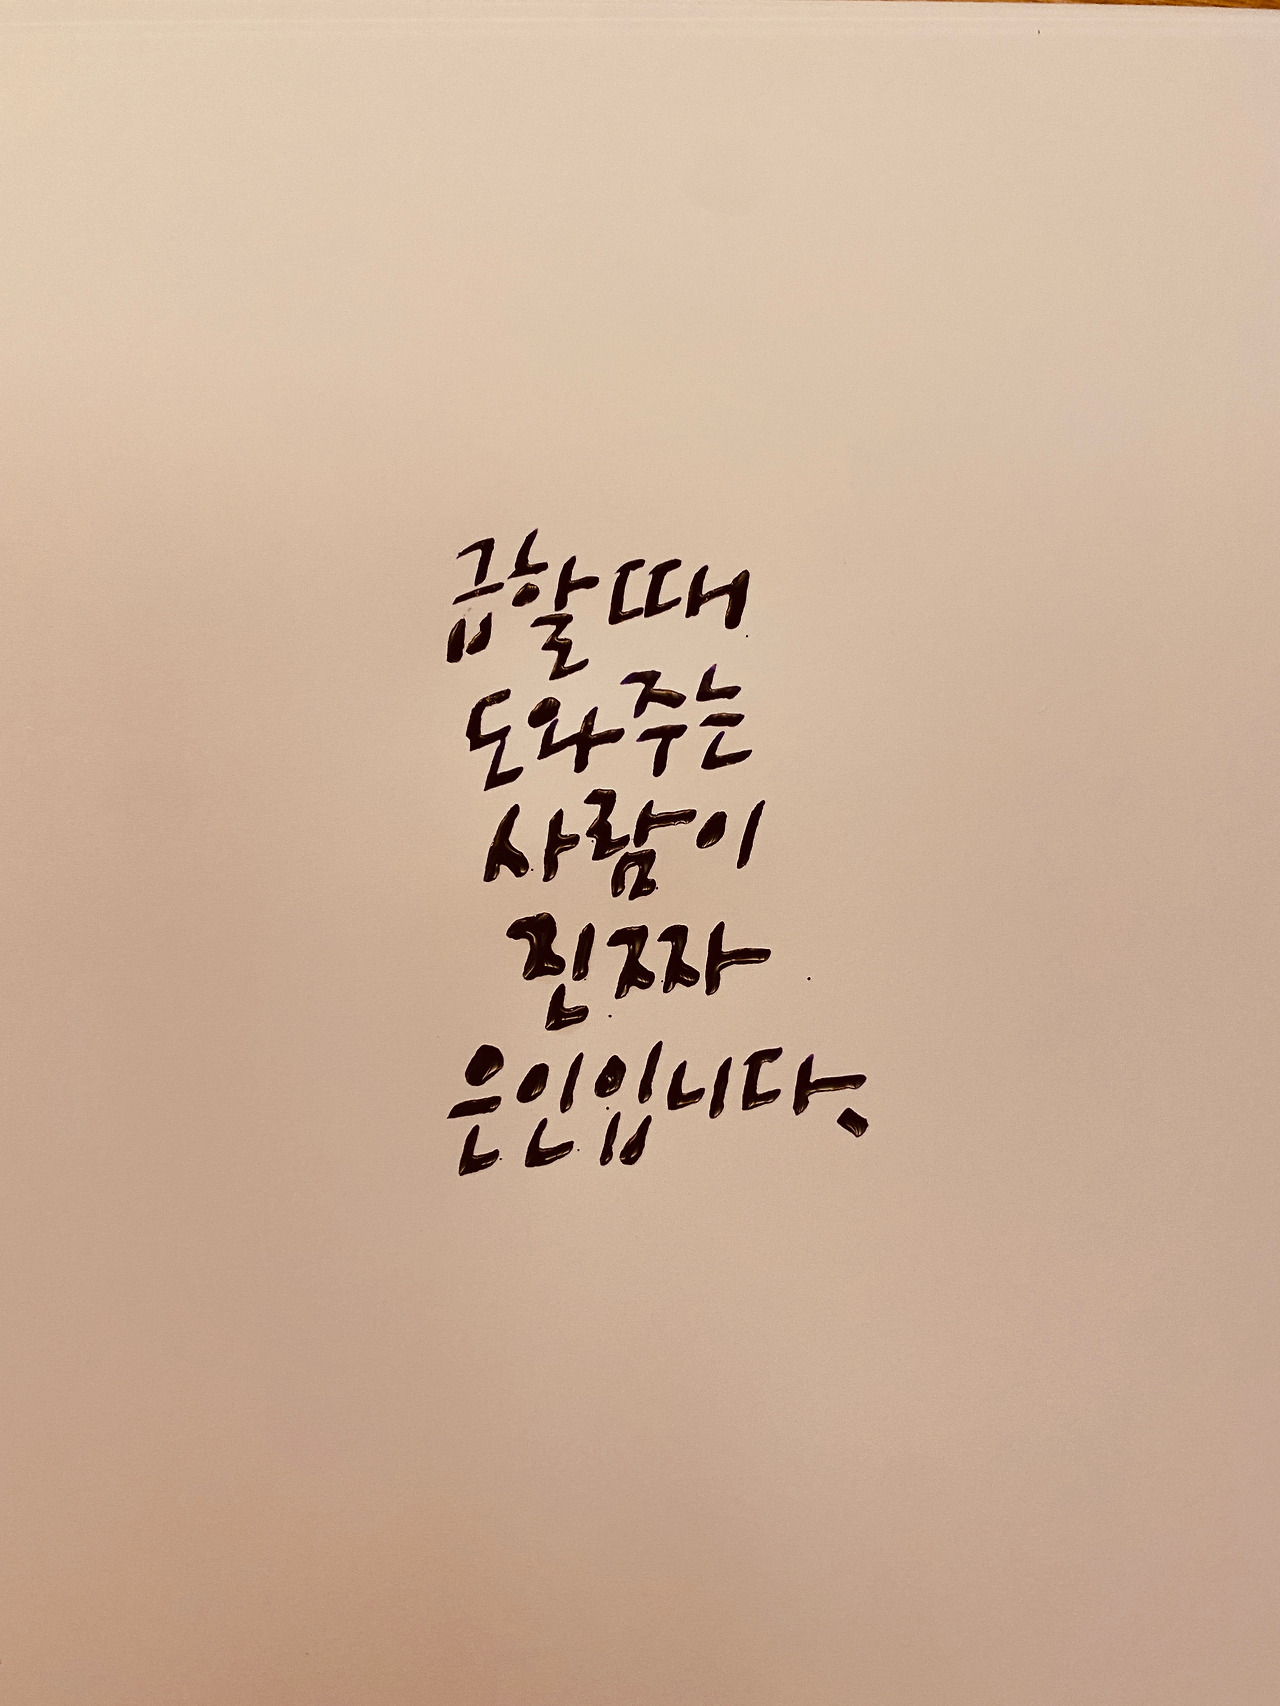 급할 때
도와주는
사람이
진짜
은인입니다.